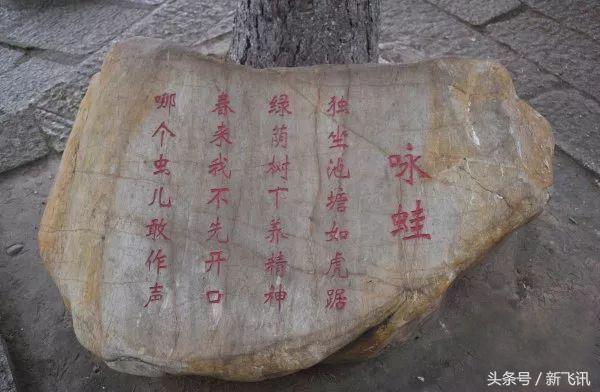 咏蛙
独坐池塘如虎踞
绿荫树下养精神
春来我不先开口
哪个虫儿敢作声
头条号 / 新飞讯